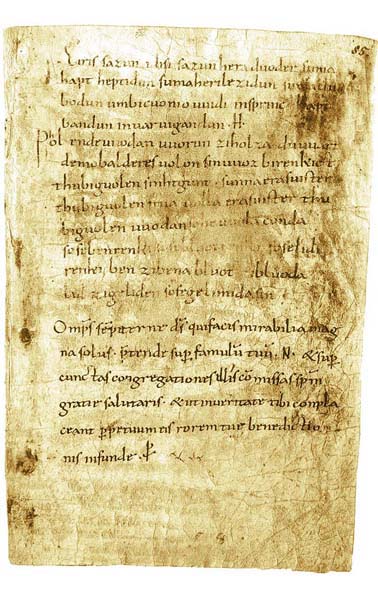 Eiris sazun idisi sazun hera duoder suma
hapt heptidun sumaherilezidun sumaclu
bodun umbicuonio uuidi insprinc hapt
bandun inuar uigandun · H ·
Phol endeuuodan uuorun ziholza du uuart
demobalderes uolon sinuuoz birenkict
thubiguolen sinhtgunt · sunna era suister
thubiguolen friia uolla era suister thu
biguolen uuodan sohe uuola conda
sosebenrenki soselidi
renki ben zibena bluot zibluoda
lid zigeliden sosegelimida sin
Omps sempiterne ds qui facis mirabilia mag
na solus · ptende sup famulu tuu · N · & sup
cunctas congregationes illis comissas spm
gratie salutaris · & ut in ueritate tibi compla
ceant ppetuum eis rorem tue benedictio
nis infunde · p
85